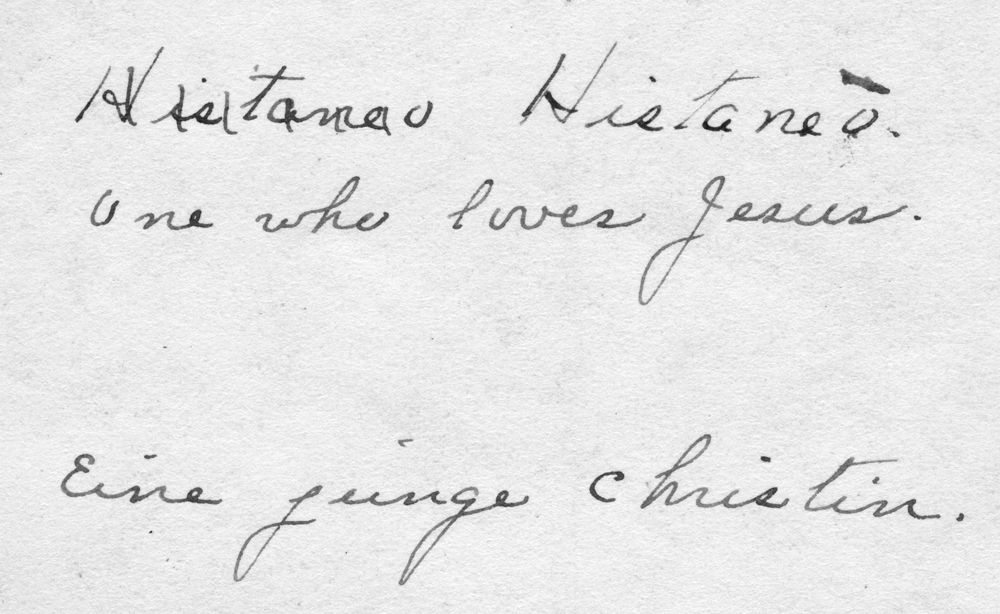 Histanao Histaneō.
One who loves Jesus.
Eine junge Christin.